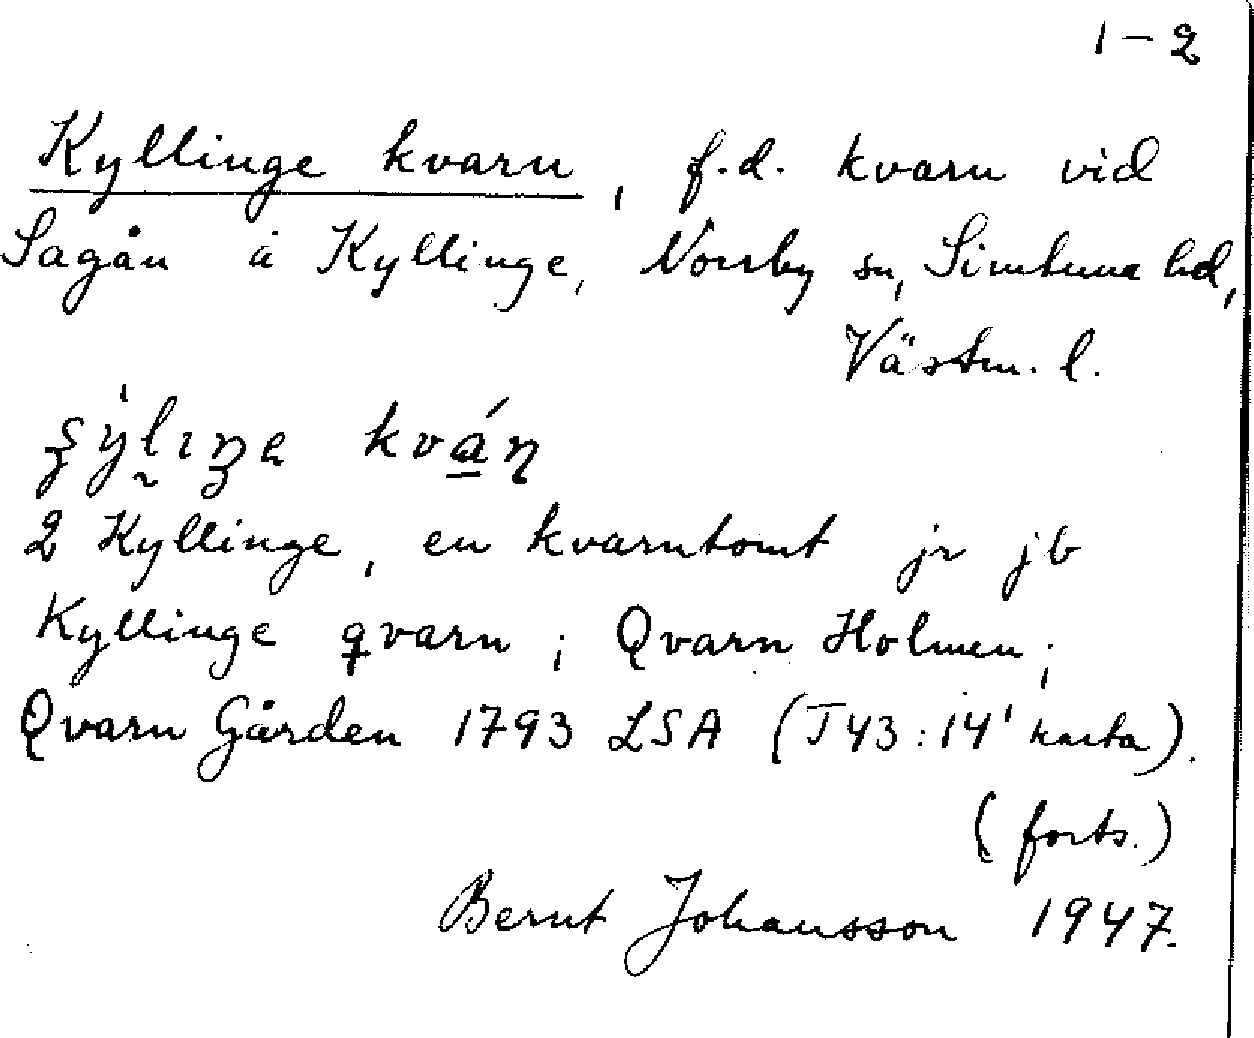 1-2
Kyllinge kvarn, f.d. kvarn vid
Sagån å Kyllinge, Norrby sn, Simtuna hd,
Västm. l.
kván
2 Kyllinge, en kvarntomt jr jb
Kyllinge qvarn; Qvarn Holmen;
Qvarn Gården 1793 LSA (T43:14' karta).
(forts.)
Bernt Johansson 1947.